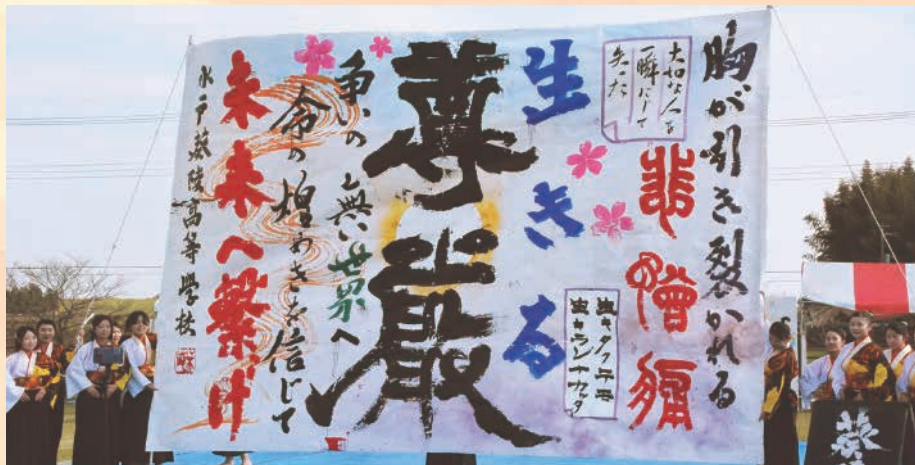 胸が引き裂かれる
大切な人を
一瞬にして
失った
生キタクテモ
生キランナカッタ
生きる
尊厳
争いの無い世界へ
命の煌めきを信じて
未来へ繋げ
水戸葵陵高等學校
葵